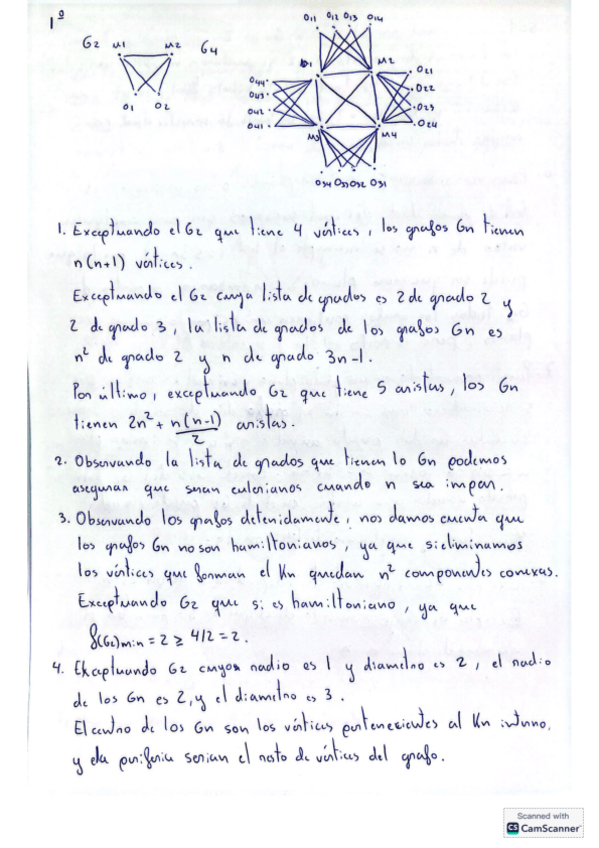 1º
G2 M1 M2 G4
O1 O2
O11 O12 O13 O14
M1 M2
O44 O43 O42 O41
O21 O22 O23 O24
M3 M4
O34 O33 O32 O31
1. Exceptuando el G2 que tiene 4 vértices, los grafos Gn tienen
n(n+1) vértices.
Exceptuando el G2 cuya lista de grados es 2 de grado 2 y
2 de grado 3, la lista de grados de los grafos Gn es
n² de grado 2 y n de grado 3n-1.
Por último, exceptuando G2 que tiene 5 aristas, los Gn
tienen 2n² + n(n-1)/2 aristas.
2. Observando la lista de grados que tienen lo Gn podemos
asegurar que seran eulerianos cuando n sea impar.
3. Observando los grafos detenidamente, nos damos cuenta que
los grafos Gn no son hamiltonianos, ya que si eliminamos
los vértices que forman el Kn quedan n² componentes conexas.
Exceptuando G2 que si es hamiltoniano, ya que
δ(G2)min = 2 ≥ 4/2 = 2.
4. Exceptuando G2 cuyo radio es 1 y diametro es 2, el radio
de los Gn es 2, y el diametro es 3.
El centro de los Gn son los vértices pertenecientes al Kn interno,
y la periferia serian el resto de vértices del grafo.
Scanned with
CS CamScanner